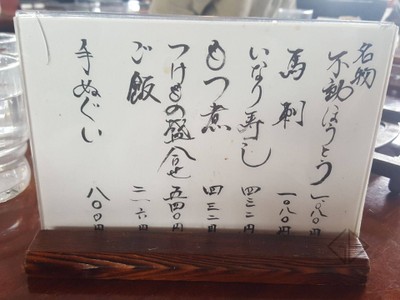 名物
不動ほうとう 一、〇八〇円
馬刺 一、〇八〇円
いなり寿し 四三二円
もつ煮 四三二円
つけもの盛合せ 五四〇円
ご飯 二一六円
手ぬぐい 八〇〇円